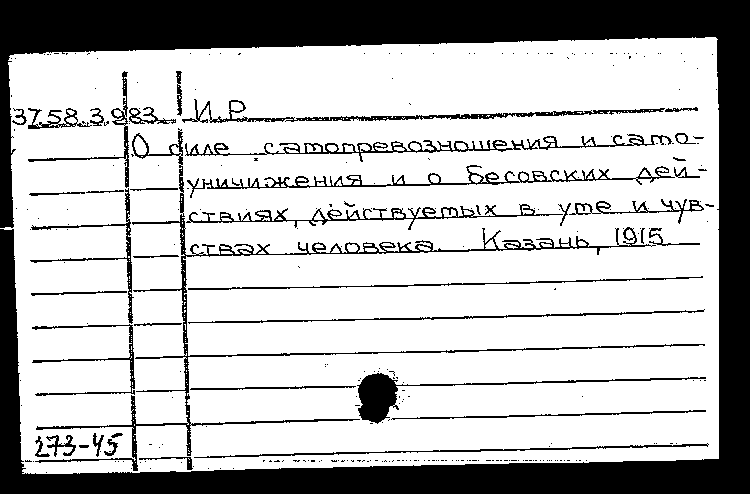 37.58.3.983 И.Р
О силе самопревозношения и само-
уничижения и о бесовских дей-
ствиях, действуемых в уме и чув-
ствах человека. Казань, 1915
273-45